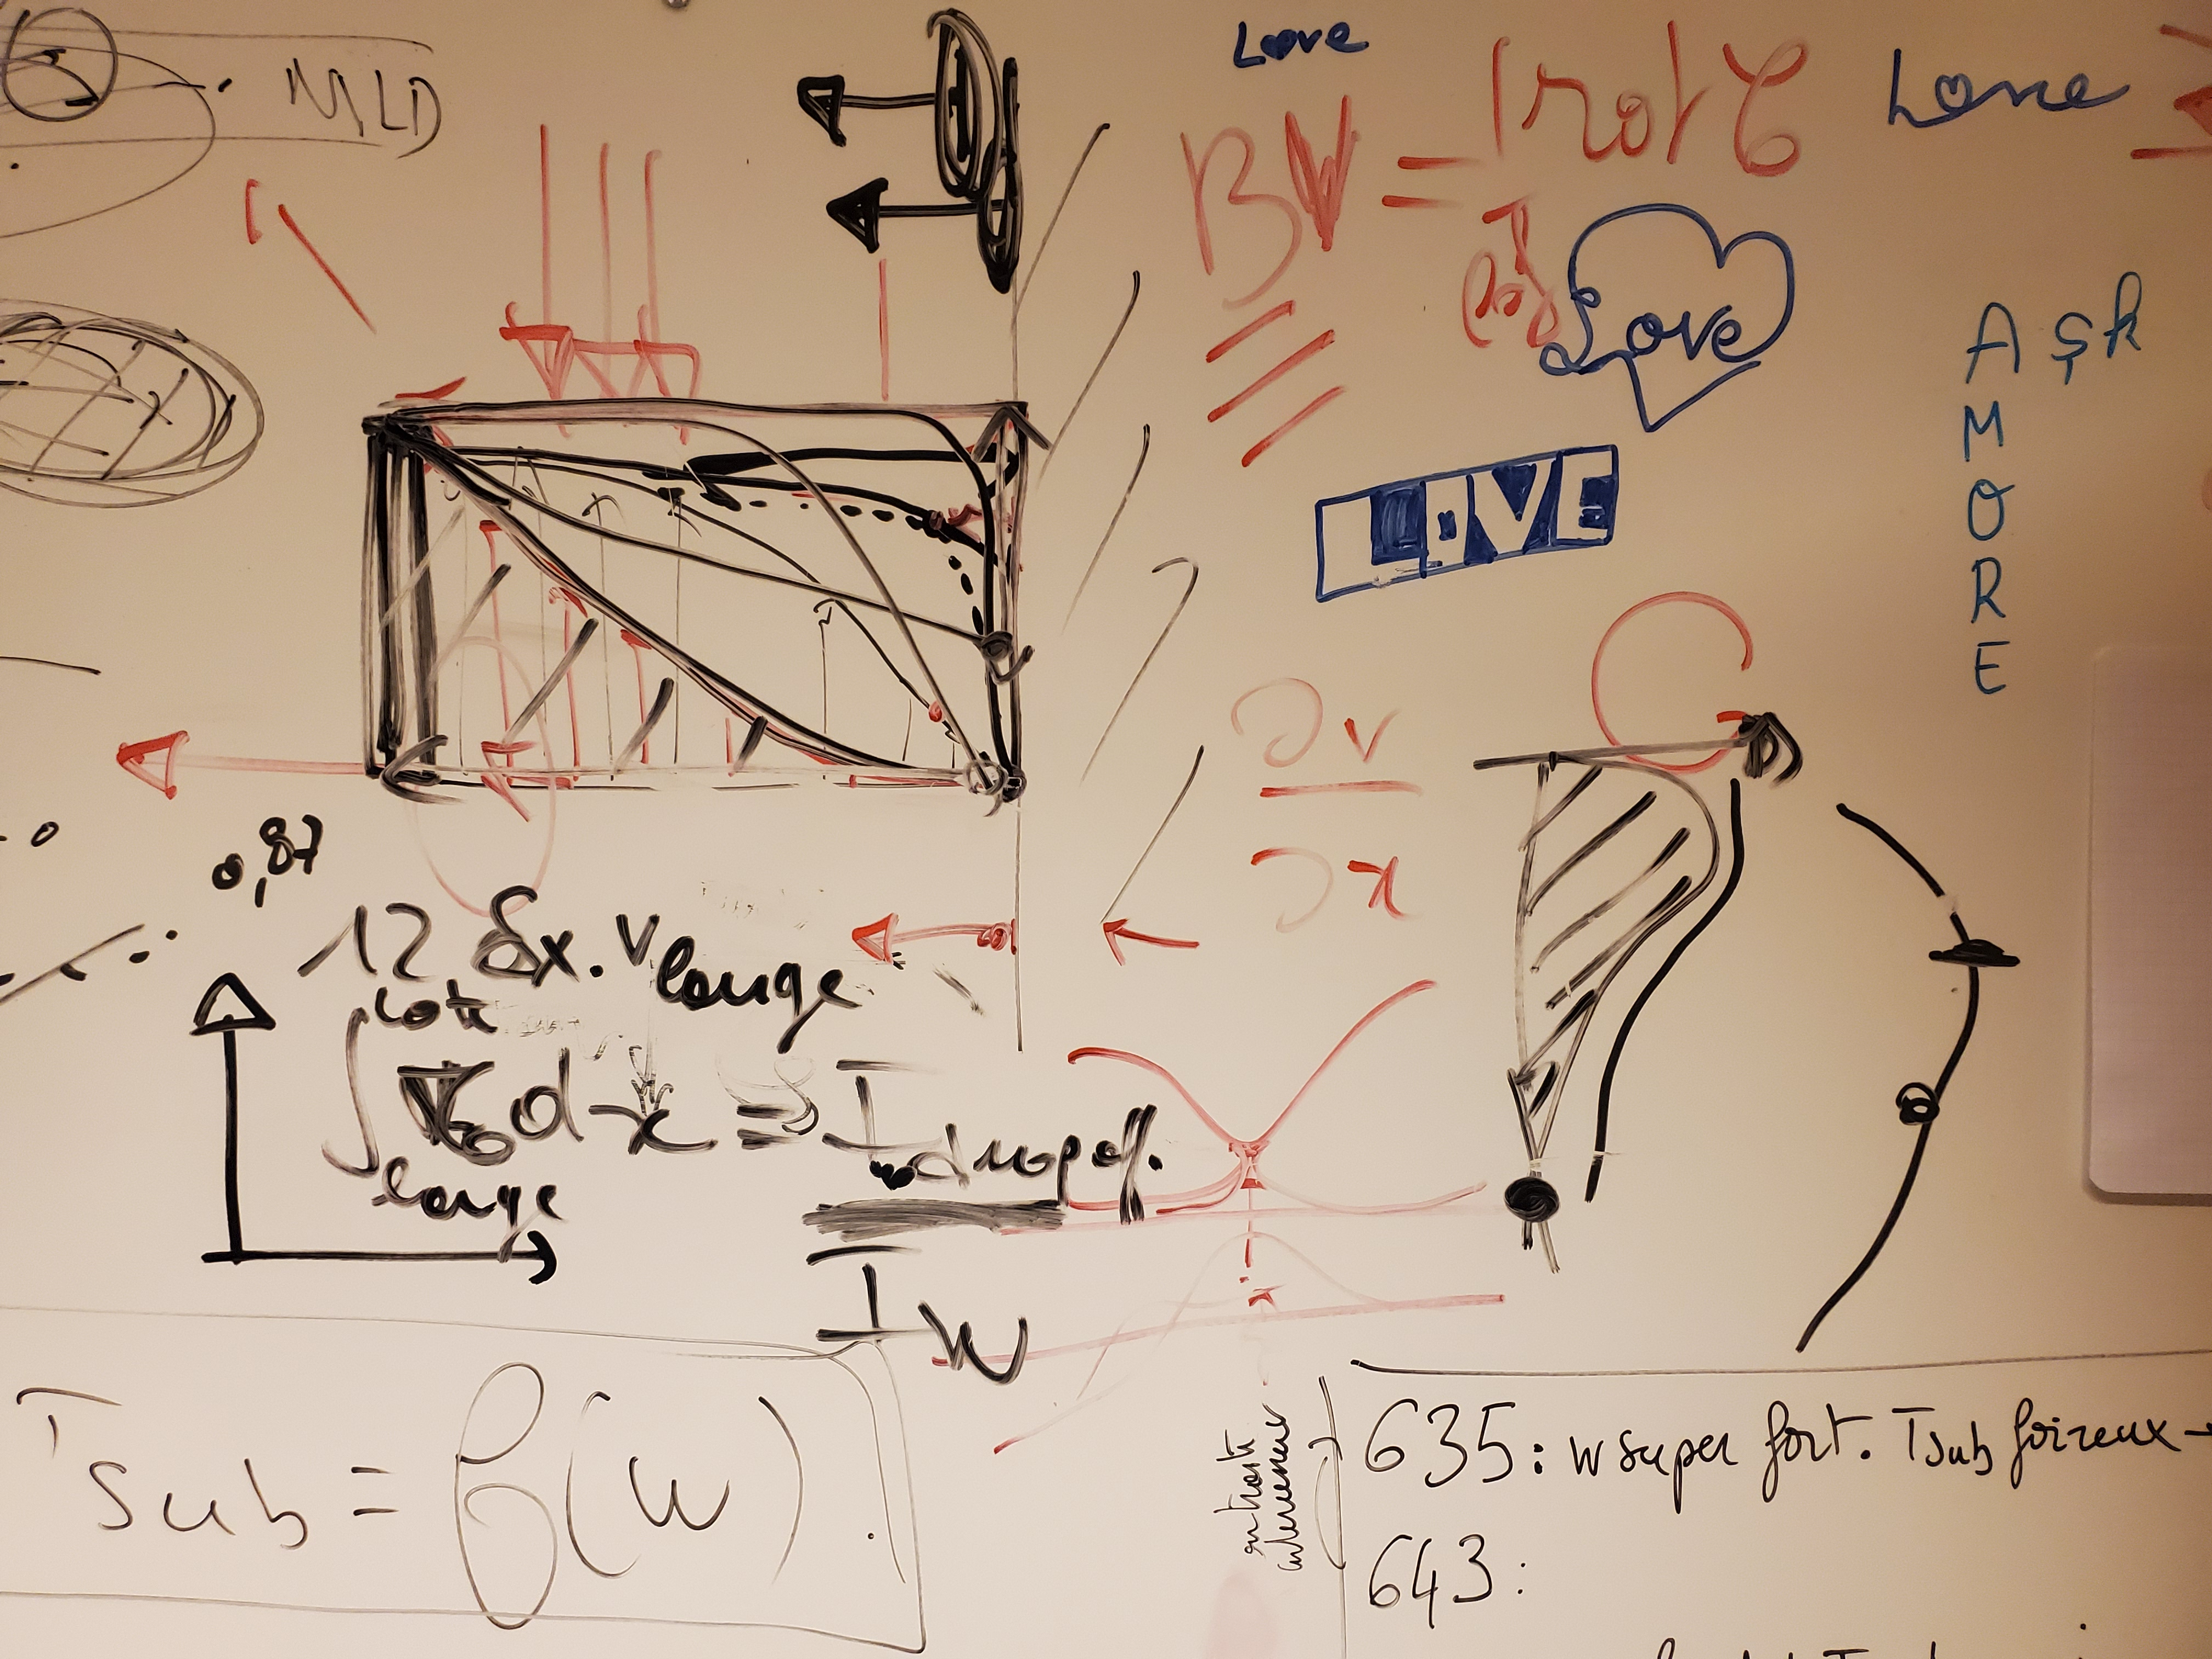 MLD
Love
BV = 1 rot τ
Love
Love
Aşk
A
M
O
R
E
LOVE
∂v
∂x
0,87
12 δx. v large
∫ cote
large
dx => I drop off.
I w
Tsub = f(w).
635: w super fort. Tsub foireux →
643: